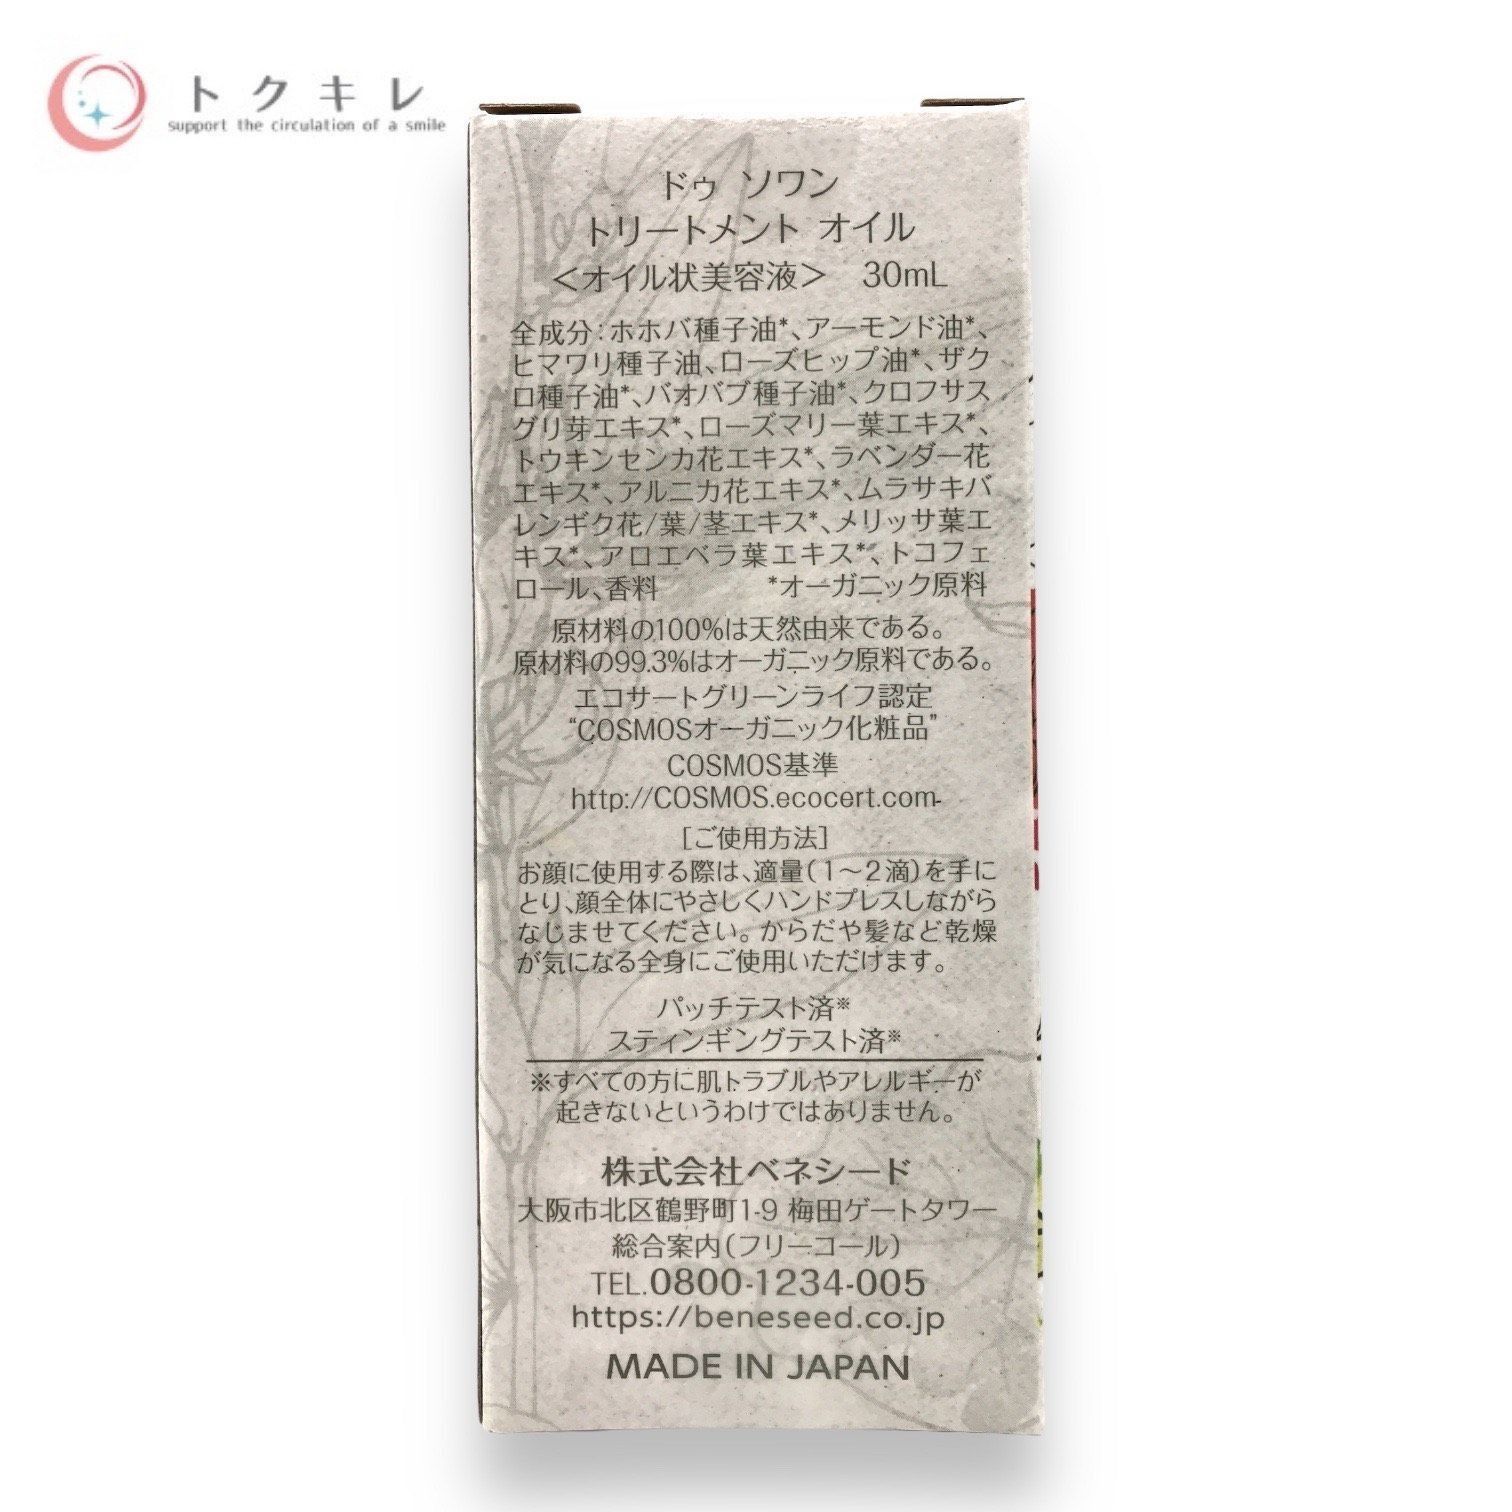 トクキレ
support the circulation of a smile
ドゥ ソワン
トリートメント オイル
＜オイル状美容液＞ 30mL
全成分：ホホバ種子油*、アーモンド油*、
ヒマワリ種子油、ローズヒップ油*、ザク
ロ種子油*、バオバブ種子油*、クロフサス
グリ芽エキス*、ローズマリー葉エキス*、
トウキンセンカ花エキス*、ラベンダー花
エキス*、アルニカ花エキス*、ムラサキバ
レンギク花/葉/茎エキス*、メリッサ葉エ
キス*、アロエベラ葉エキス*、トコフェ
ロール、香料 *オーガニック原料
原材料の100%は天然由来である。
原材料の99.3%はオーガニック原料である。
エコサートグリーンライフ認定
“COSMOSオーガニック化粧品”
COSMOS基準
http://COSMOS.ecocert.com
[ご使用方法]
お顔に使用する際は、適量（1～2滴）を手に
とり、顔全体にやさしくハンドプレスしながら
なじませてください。からだや髪など乾燥
が気になる全身にご使用いただけます。
パッチテスト済※
スティンギングテスト済※
※すべての方に肌トラブルやアレルギーが
起きないというわけではありません。
株式会社ベネシード
大阪市北区鶴野町1-9 梅田ゲートタワー
総合案内（フリーコール）
TEL.0800-1234-005
https://beneseed.co.jp
MADE IN JAPAN